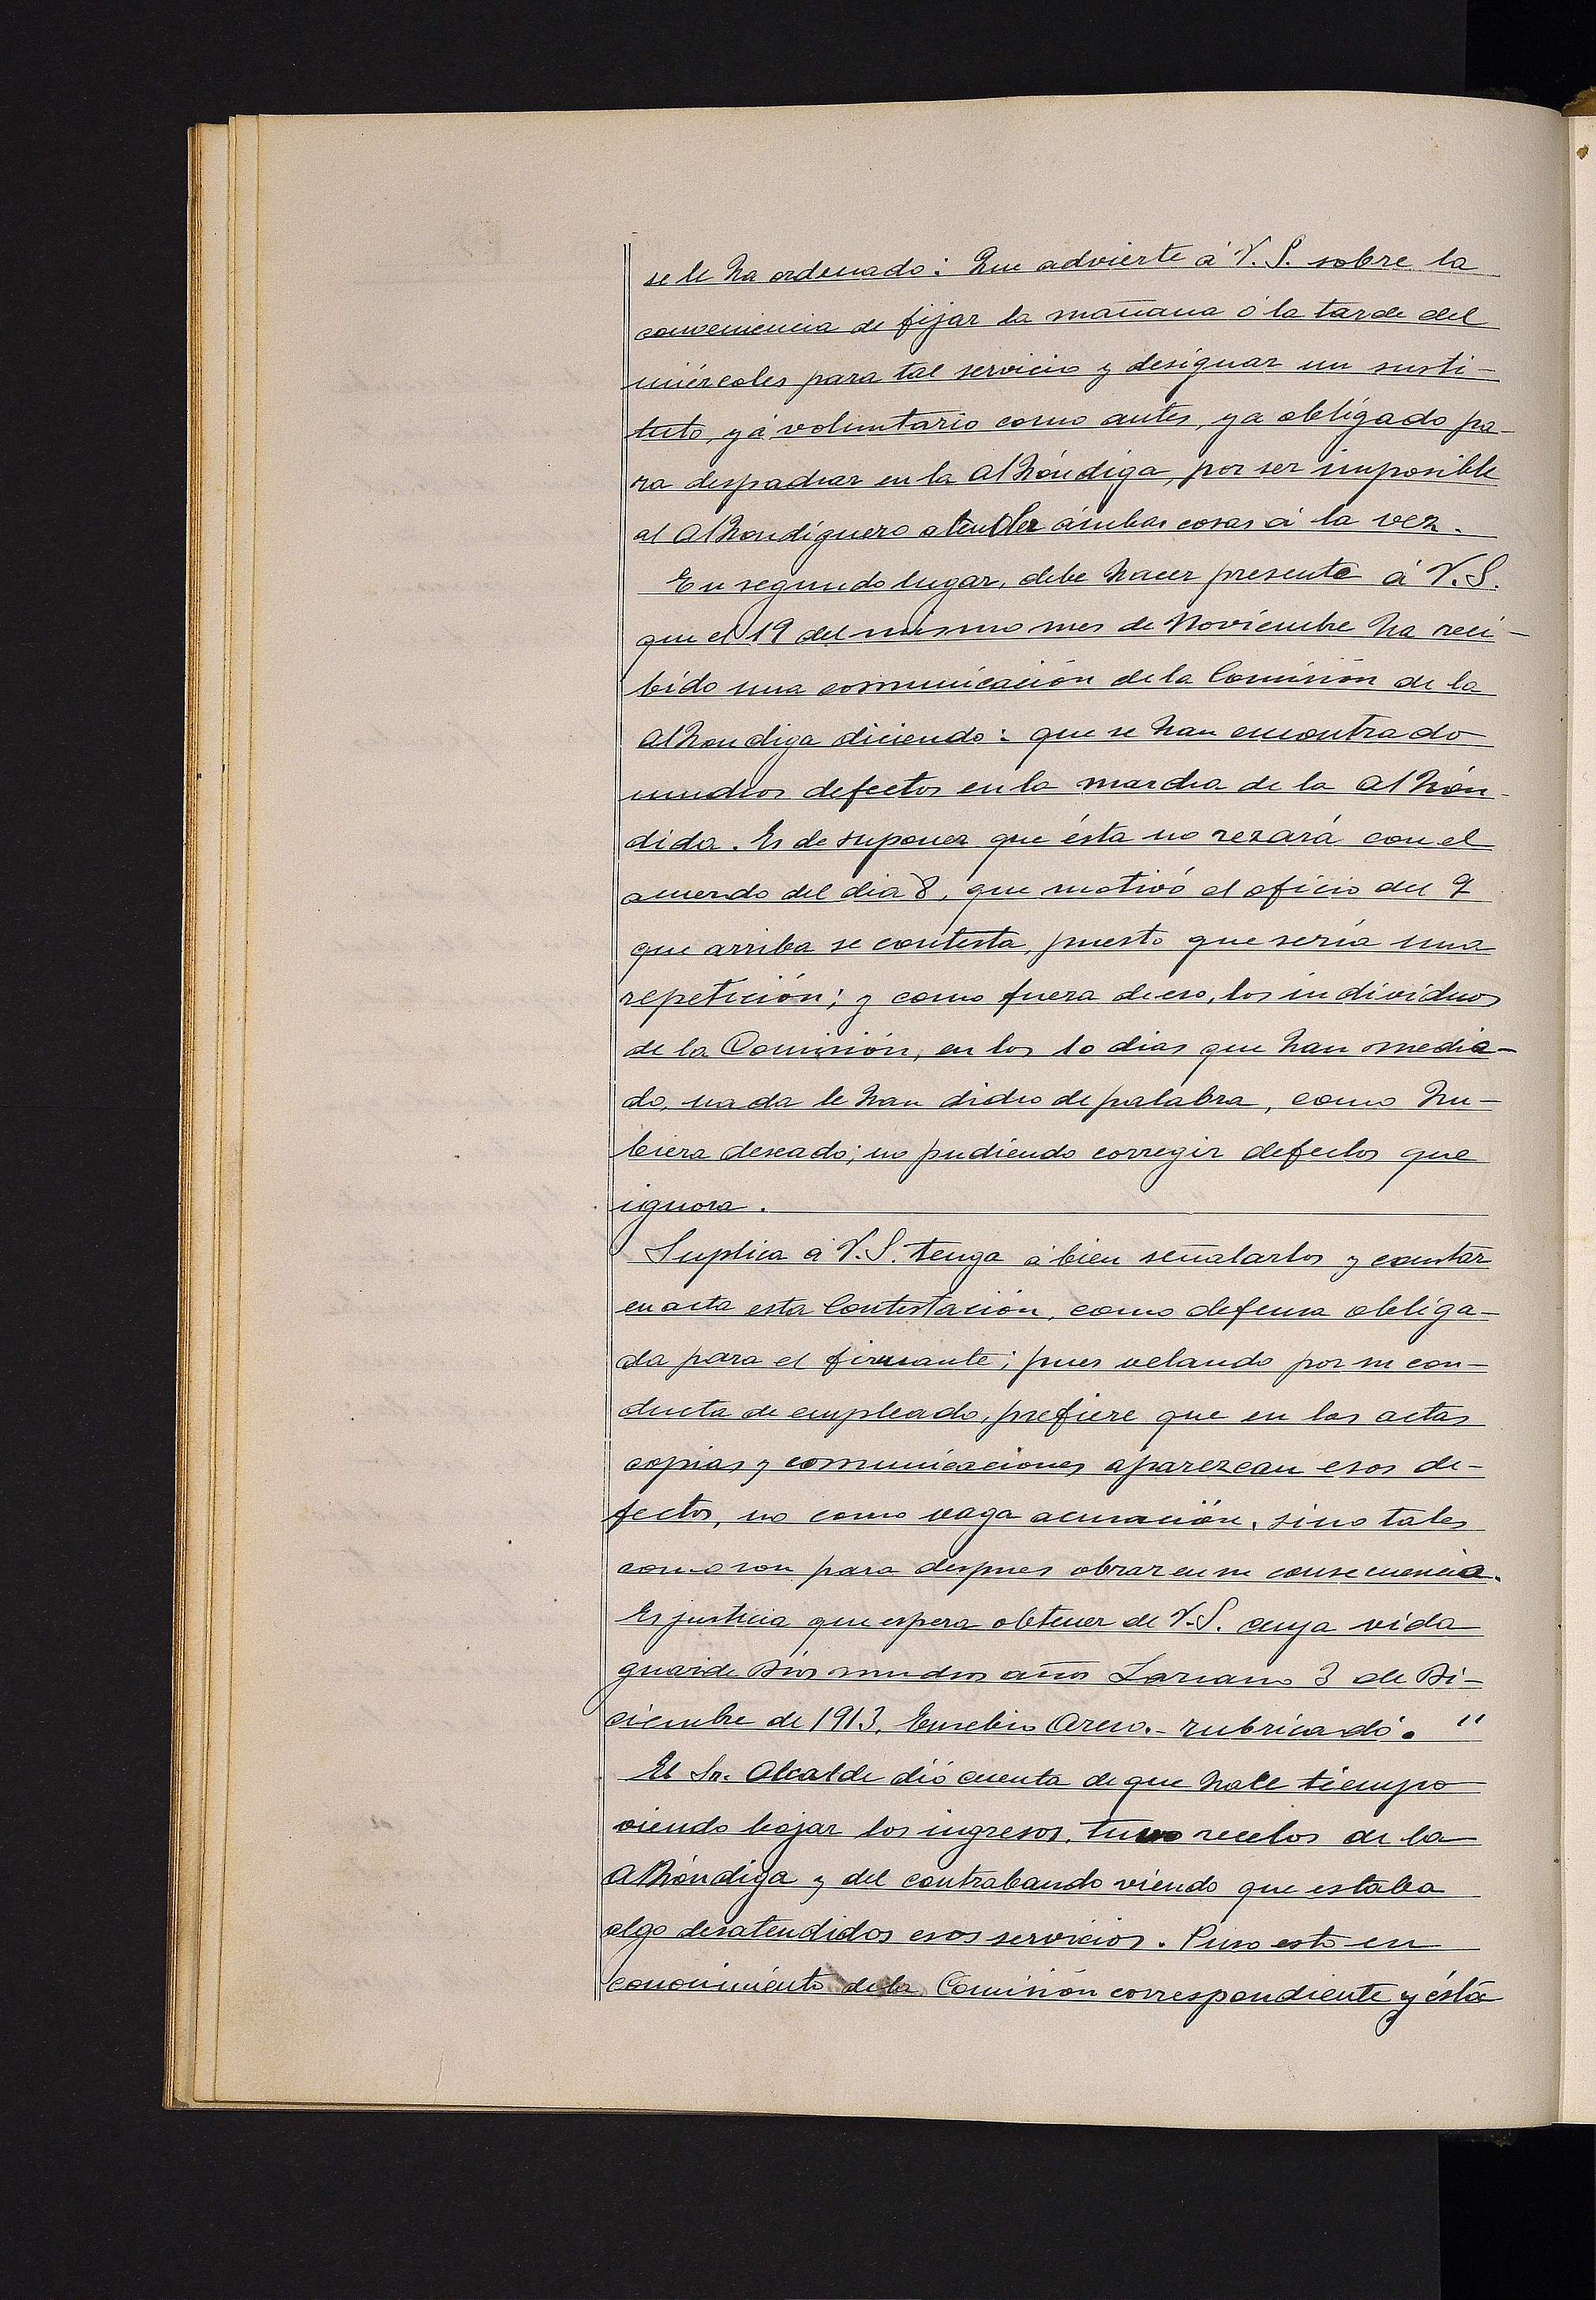 se le ha ordenado: Que advierte á V. S. sobre la
conveniencia de fijar la mañana ó la tarde del
miércoles para tal servicio y designar un susti-
tuto, yá voluntario como antes, ya obligado pa-
ra despachar en la Alhóndiga, por ser imposible
al Alhondiguero atender ámbas cosas á la vez.
En segundo lugar, debe hacer presente á V. S.
que el 19 del mismo mes de Noviembre ha reci-
bido una comunicación de la Comisión de la
Alhondiga diciendo: que se han encontrado
muchos defectos en la marcha de la Alhón-
dida. Es de suponer que ésta no rezará con el
acuerdo del dia 8, que motivó el oficio del 9
que arriba se contesta, puesto que sería una
repetición; y como fuera de eso, los individuos
de la Comisión, en los 10 dias que han media-
do, nada le han dicho de palabra, como hu-
biera deseado; no pudiendo corregir defectos que
ignora.
Suplica á V. S. tenga á bien señalarlos y constar
en acta esta Contestación, como defensa obliga-
da para el firmante; pues velando por su con-
ducta de empleado, prefiere que en las actas
copias y comunicaciones aparezcan esos de-
fectos, no como vaga acusación, sino tales
como son para despues obrar en su consecuencia.
Es justicia que espera obtener de V. S. cuya vida
guarde Dios muchos años Lazcano 3 de Di-
ciembre de 1913. Eusebio Areso.- rubricado. "
El Sr. Alcalde dió cuenta de que hace tiempo
viendo bajar los ingresos, tuvo recelos de la
Alhóndiga y del contrabando viendo que estaba
algo desatendidos esos servicios. Puso esto en
conocimiento de la Comisión correspondiente y ésta